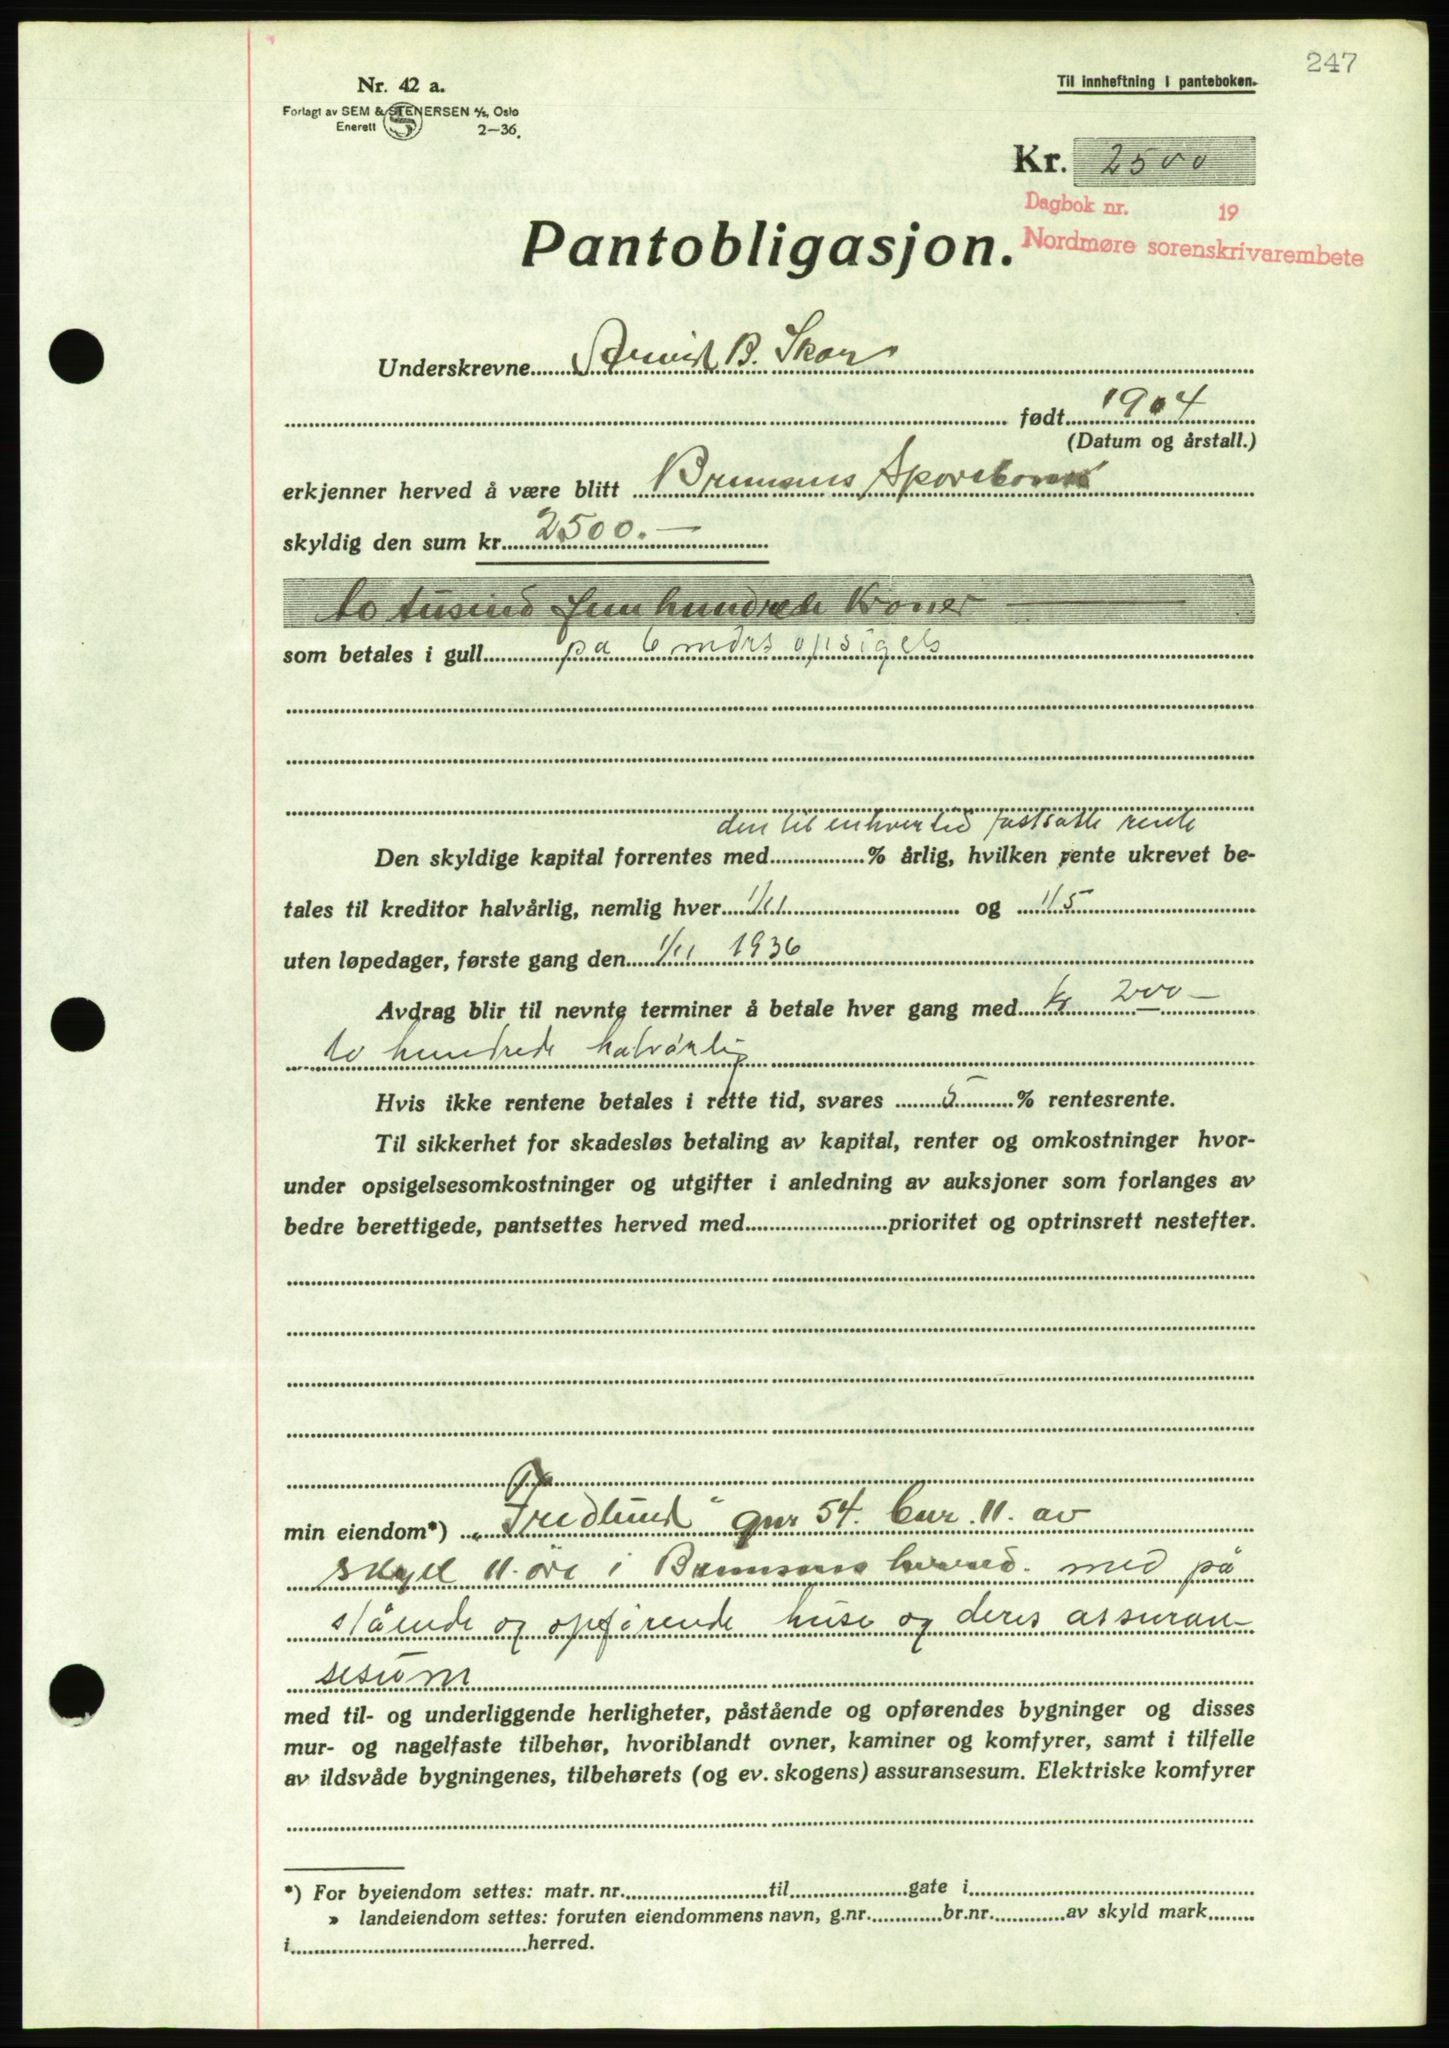 247
Nr. 42 a.
Til innheftning i panteboken.
Forlagt av SEM & STENERSEN A/S, Oslo
Enerett 2-36.
Kr. 2500
Dagbok nr. 19
Nordmøre sorenskrivarembete
Pantobligasjon.
Underskrevne Arvid B. Skar
født 1904
(Datum og årstall.)
erkjenner herved å være blitt Bremsnes Sparebank
skyldig den sum kr. 2500.—
to tusind fem hundrede Kroner —
som betales i gull på 6 mdrs opsigels
den til enhver tid fastsatte rente
Den skyldige kapital forrentes med % årlig, hvilken rente ukrevet be-
tales til kreditor halvårlig, nemlig hver 1/11 og 1/5
uten løpedager, første gang den 1/11 1936
Avdrag blir til nevnte terminer å betale hver gang med kr 200—
to hundrede halvårlig
Hvis ikke rentene betales i rette tid, svares 5 % rentesrente.
Til sikkerhet for skadesløs betaling av kapital, renter og omkostninger hvor-
under opsigelsesomkostninger og utgifter i anledning av auksjoner som forlanges av
bedre berettigede, pantsettes herved med prioritet og optrinsrett nestefter.
min eiendom*) „Fredlund" gnr 54. bnr. 11. av
skyld 11 øre i Bremsnes herred. med på
stående og opførende huse og deres assuran-
sesum
med til- og underliggende herligheter, påstående og opførendes bygninger og disses
mur- og nagelfaste tilbehør, hvoriblandt ovner, kaminer og komfyrer, samt i tilfelle
av ildsvåde bygningenes, tilbehørets (og ev. skogens) assuransesum. Elektriske komfyrer
*) For byeiendom settes: matr. nr. til gate i
» landeiendom settes: foruten eiendommens navn, g.nr. br.nr. av skyld mark
i herred.